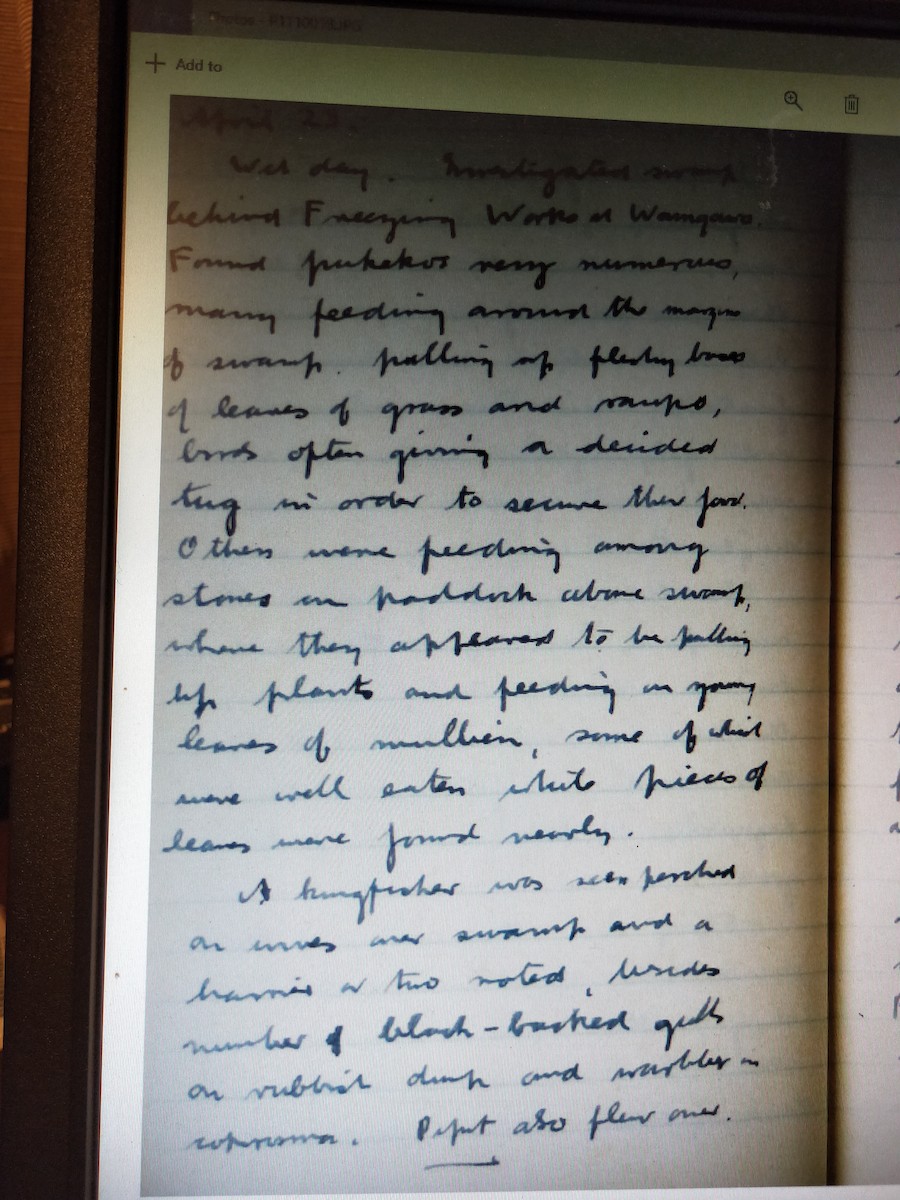 Photos - R1110018.JPG
Add to
April 23.
Wet day. Investigated swamp
behind Freezing Works at
Found pukekos very numerous,
many feeding around the margin
of swamp. pulling up fleshy bases
of leaves of grass and raupo,
birds often giving a decided
tug in order to secure their food.
Others were feeding among
stones in paddock above swamp,
where they appeared to be pulling
up plants and feeding on young
leaves of mullein, some of which
were well eaten while pieces of
leaves were found nearby.
A kingfisher was seen perched
on wires over swamp and a
harrier or two noted, besides
number of black-backed gulls
on rubbish dump and warbler in
coprosma. Pipit also flew over.